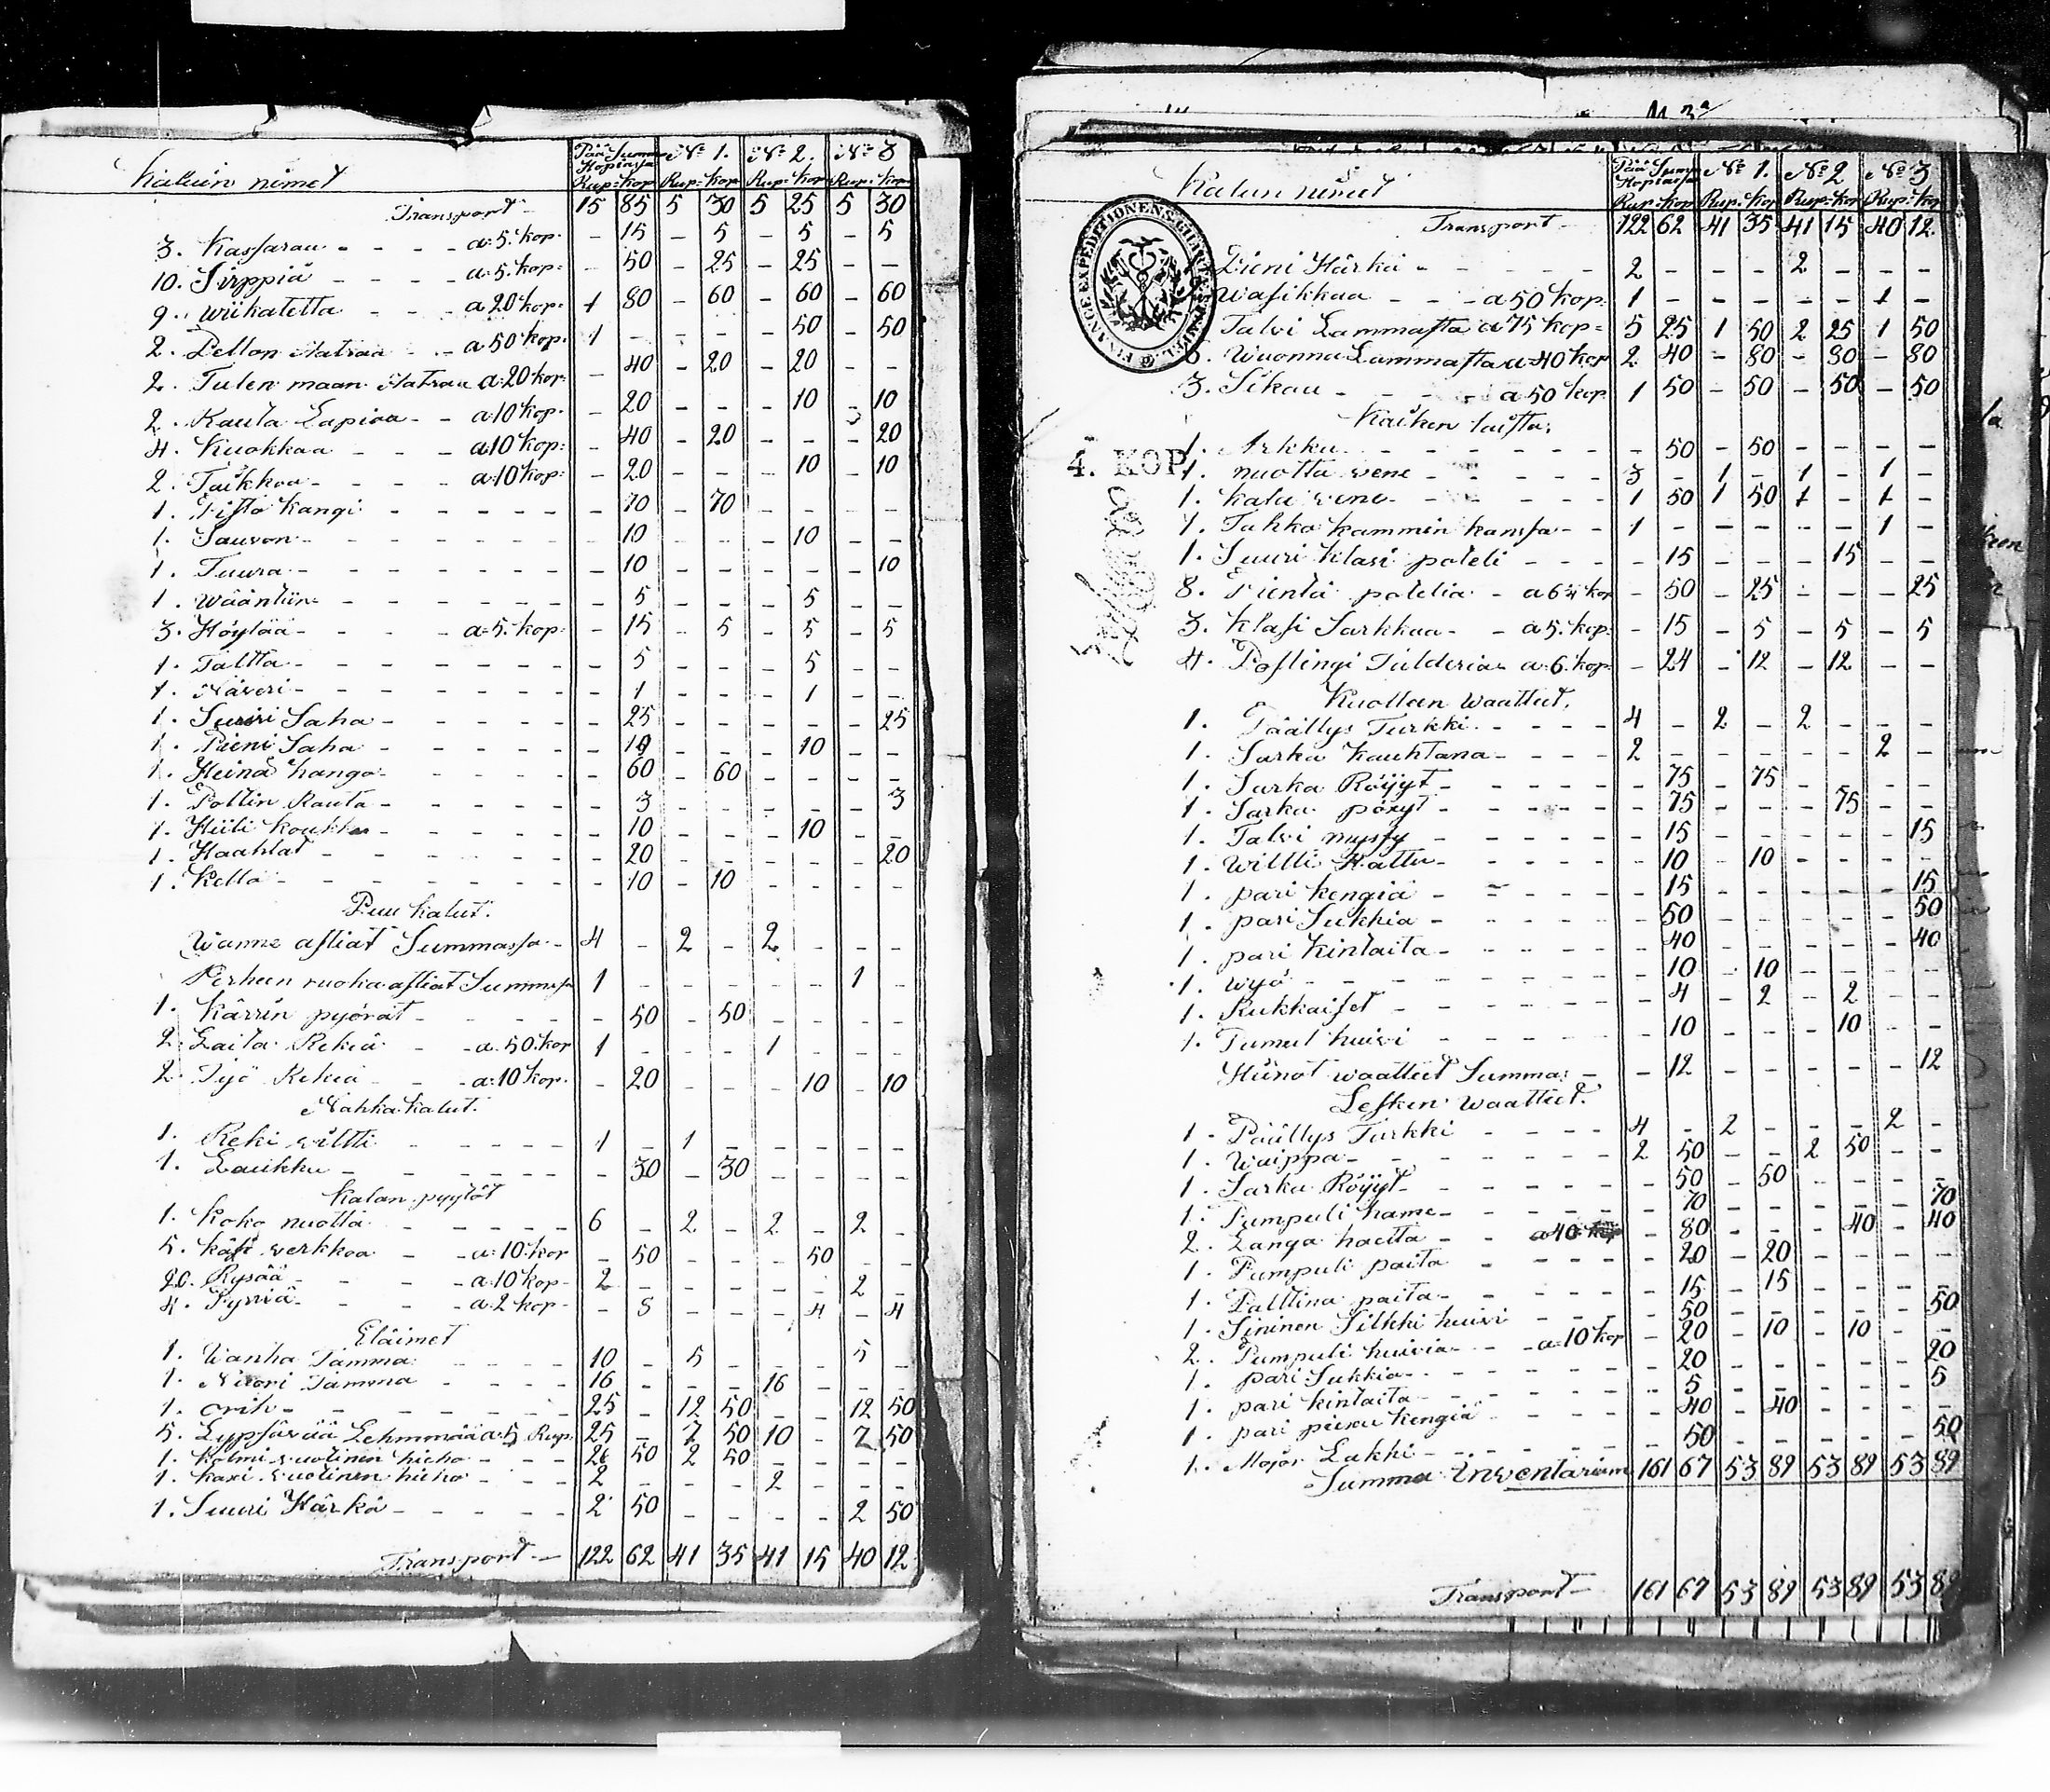 Kaluin nimet Pää Summa Kopiassa № 1. № 2. № 3
Rup: Kop Rup: Kop Rup: Kop Rup: Kop
Transport - 15 85 5 30 5 25 5 30
3. Kassaraa - - - a 5. kop: - 15 - 5 - 5 - 5
10. Sirppiä - - - a 5. kop: - 50 - 25 - 25 - -
9. wiikatetta - - - a 20 kop: 1 80 - 60 - 60 - 60
2. Pellon Aatraa - - a 50 kop: 1 - - - - 50 - 50
2. Tulen maan Aatraa a 20 kop: - 40 - 20 - 20 - -
2. Rauta Lapiaa - - a 10 kop. - 20 - - - 10 - 10
4. Kuokkaa - - - a 10 kop: - 40 - 20 - - - 20
2. Taikkoa - - - - a 10 kop: - 20 - - - 10 - 10
1. Pisto Kangi - - - - - - 70 - 70 - - - -
1. Sauvon - - - - - - 10 - - - 10 - -
1. Tuura - - - - - - 10 - - - - - 10
1. wääntiin - - - - - - 5 - - - 5 - -
3. Höylää - - - - a 5. kop: - 15 - 5 - 5 - 5
1. Taltta - - - - - - 5 - - - 5 - -
1. Näveri - - - - - - 1 - - - 1 - -
1. Suuri Saha - - - - - - 25 - - - - - 25
1. Pieni Saha - - - - - - 10 - - - 10 - -
1. Heinä hango - - - - - 60 - 60 - - - -
1. Poltin Rauta - - - - - - 3 - - - - - 3
1. Hiili koukku - - - - - - 10 - - - 10 - -
1. Haahlat - - - - - - 20 - - - - - 20
1. Kello - - - - - - 10 - 10 - - - -
Puu kalut.
Wanne astiat Summassa - 4 - 2 - 2 - - -
Perheen ruoka astiat Summassa 1 - - - - - 1 -
1. Kärrin pyörät - - - - - 50 - 50 - - - -
2. Laita Rekiä - - a 50. kop 1 - - - 1 - - -
2. Työ Rekiä - - - a 10 kop. - 20 - - - 10 - 10
Nahka kalut.
1. Reki wiltti - - - - - 1 - 1 - - - - -
1. Laukku - - - - - - 30 - 30 - - - -
Kalan pyytöt
1. Koko nuotta - - - - - 6 - 2 - 2 - 2 -
5. käsi werkkoa - - a 10 kop - 50 - - - 50 - -
20. Rysää - - - - a 10 kop - 2 - - - - - 2 -
4. Pyrriä - - - - a 2 kop - - 8 - - - 4 - 4
Eläimet
1. Wanha Tamma - - - - 10 - 5 - - - 5 -
1. Nuori Tamma - - - - 16 - - - 16 - - -
1. orih - - - - - - 25 - 12 50 - - 12 50
5. Lypsävää Lehmmää a 5 Rup: 25 - 7 50 10 - 7 50
1. Kolmi wuotinen hieho - - - 2 50 2 50 - - - -
1. Kaxi wuotinen hieho - - - 2 - - - 2 - - -
1. Suuri Härkä - - - - - 2 50 - - - - 2 50
Transport - 122 62 41 35 41 15 40 12
FINANCE EXPEDITIONENS
4. KOP
Kalun nimet Pää Summa Kopiassa № 1. № 2 № 3
Rup: Kop Rup: Kop Rup: Kop Rup: Kop
Transport - 122 62 41 35 41 15 40 12
Pieni Härkä - - - - - 2 - - - 2 - - -
Wasikkaa - - - a 50 kop: 1 - - - - - 1 -
Talvi Lammasta a 75 kop: 5 25 1 50 2 25 1 50
6. Wuonna Lammasta a 40 kop 2 40 - 80 - 80 - 80
3. Sikaa - - - a 50 kop. 1 50 - 50 - 50 - 50
Kaiken laista.
1. Arkku - - - - - - - 50 - 50 - - - -
1. nuotta wene - - - - - 3 - 1 - 1 - 1 -
1. Kala wene - - - - - 1 50 1 50 1 - 1 -
1. Tahko kammin kanssa - - 1 - - - - - 1 -
1. Suuri Klasi poteli - - - - 15 - - - 15 - -
8. Pientä potelia - a 6 ¼ kop - 50 - 25 - - - 25
3. Klasi Sarkkaa - - a 5. kop: - 15 - 5 - 5 - 5
4. Poslingi Tälderiä a 6. kop: - 24 - 12 - 12 - -
Kuolleen Waatteet.
1. Päällys Turkki - - - - 4 - 2 - 2 - - -
1. Sarka Kauhtana - - - - 2 - - - - - 2 -
1. Sarka Röijyt - - - - - - 75 - 75 - - - -
1. Sarka pöxyt - - - - - - 75 - - - 75 - -
1. Talvi myssy - - - - - - 15 - - - - - 15
1. Wiltti Hattu - - - - - - 10 - 10 - - - -
1. pari kengiä - - - - - - 15 - - - - - 15
1. pari Sukkia - - - - - - 50 - - - - - 50
1. pari kintaita - - - - - - 40 - - - - - 40
1. Wyö - - - - - - 10 - 10 - - - -
1. Rukkaiset - - - - - - 4 - 2 - 2 - -
1. Tumut huivi - - - - - - 10 - - - 10 - -
Huonot waatteet Summa: - - 12 - - - - - 12
Lesken Waatteet.
1. Päällys Turkki - - - - 4 - 2 - - - 2 -
1. Waippa - - - - - - 2 50 - - 2 50 - -
1. Sarka Röijyt - - - - - - 50 - 50 - - - -
1. Pumpuli hame - - - - - - 70 - - - - - 70
2. Langa hametta - - a 40 kop - 80 - - - 40 - 40
1. Pumpuli paita - - - - - 20 - 20 - - - -
1. Palttina paita - - - - - 15 - 15 - - - -
1. Sininen Silkki huivi - - - - 50 - - - - - 50
2. Pumpuli huivia - - - a 10 kop - 20 - 10 - 10 - -
1. pari Sukkia - - - - - - 20 - - - - - 20
1. pari kintaita - - - - - - 5 - - - - - 5
1. pari piexu kengiä - - - - - 40 - 40 - - - -
1. Major Lakki - - - - - - 50 - - - - - 50
Summa Inventarium 161 67 53 89 53 89 53 89
Transport - 161 67 53 89 53 89 53 89